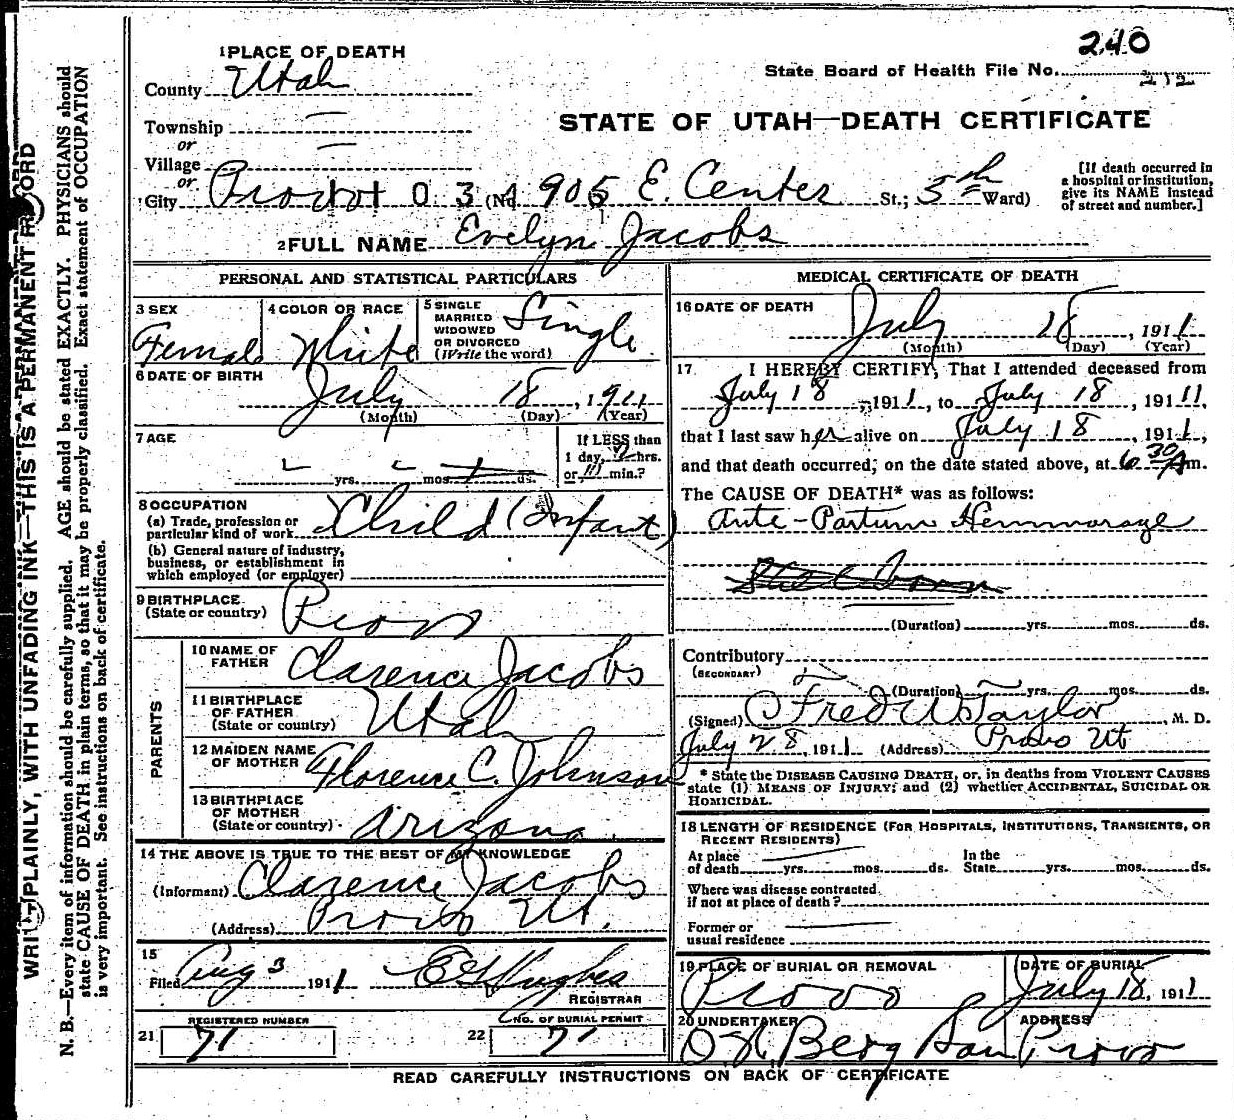 240
State Board of Health File No. 212
STATE OF UTAH—DEATH CERTIFICATE
1 PLACE OF DEATH
County Utah
Township —
or
Village —
or
City Provo 1 0 3 4 (No 905 E. Center St.; 5th Ward)
[If death occurred in
a hospital or institution,
give its NAME instead
of street and number.]
2 FULL NAME Evelyn Jacobs
PERSONAL AND STATISTICAL PARTICULARS
3 SEX
Female
4 COLOR OR RACE
White
5 SINGLE
MARRIED
WIDOWED
OR DIVORCED
(Write the word)
Single
6 DATE OF BIRTH
July 18, 1911
(Month) (Day) (Year)
7 AGE
yrs. mos. ds.
If LESS than
1 day, hrs.
or min.?
8 OCCUPATION
(a) Trade, profession or
particular kind of work Child (Infant)
(b) General nature of industry,
business, or establishment in
which employed (or employer)
9 BIRTHPLACE
(State or country) Provo
PARENTS
10 NAME OF
FATHER Clarence Jacobs
11 BIRTHPLACE
OF FATHER
(State or country) Utah
12 MAIDEN NAME
OF MOTHER Florence C. Johnson
13 BIRTHPLACE
OF MOTHER
(State or country) Arizona
14 THE ABOVE IS TRUE TO THE BEST OF MY KNOWLEDGE
(Informant) Clarence Jacobs
(Address) Provo Ut.
15
Filed Aug 3 1911
REGISTRAR
REGISTERED NUMBER
21 71
NO. OF BURIAL PERMIT
22 71
MEDICAL CERTIFICATE OF DEATH
16 DATE OF DEATH
July 18, 1911
(Month) (Day) (Year)
17 I HEREBY CERTIFY, That I attended deceased from
July 18, 1911, to July 18, 19111,
that I last saw her alive on July 18, 1911,
and that death occurred, on the date stated above, at 6 30 Am.
The CAUSE OF DEATH* was as follows:
Ante-Partum Hemmorage
(Duration) yrs. mos. ds.
Contributory
(SECONDARY)
(Duration) yrs. mos. ds.
(Signed) Fred W Taylor, M. D.
July 28, 1911 (Address) Provo Ut
* State the DISEASE CAUSING DEATH, or, in deaths from VIOLENT CAUSES
state (1) MEANS OF INJURY; and (2) whether ACCIDENTAL, SUICIDAL OR
HOMICIDAL.
18 LENGTH OF RESIDENCE (FOR HOSPITALS, INSTITUTIONS, TRANSIENTS, OR
RECENT RESIDENTS)
At place
of death yrs. mos. ds.
In the
State yrs. mos. ds.
Where was disease contracted
if not at place of death?
Former or
usual residence
19 PLACE OF BURIAL OR REMOVAL
Provo
DATE OF BURIAL
July 18, 1911
20 UNDERTAKER
Berg Son
ADDRESS
Provo
READ CAREFULLY INSTRUCTIONS ON BACK OF CERTIFICATE
WRITE PLAINLY, WITH UNFADING INK—THIS IS A PERMANENT RECORD
N. B.—Every item of information should be carefully supplied. AGE should be stated EXACTLY. PHYSICIANS should
state CAUSE OF DEATH in plain terms, so that it may be properly classified. Exact statement of OCCUPATION
is very important. See instructions on back of certificate.